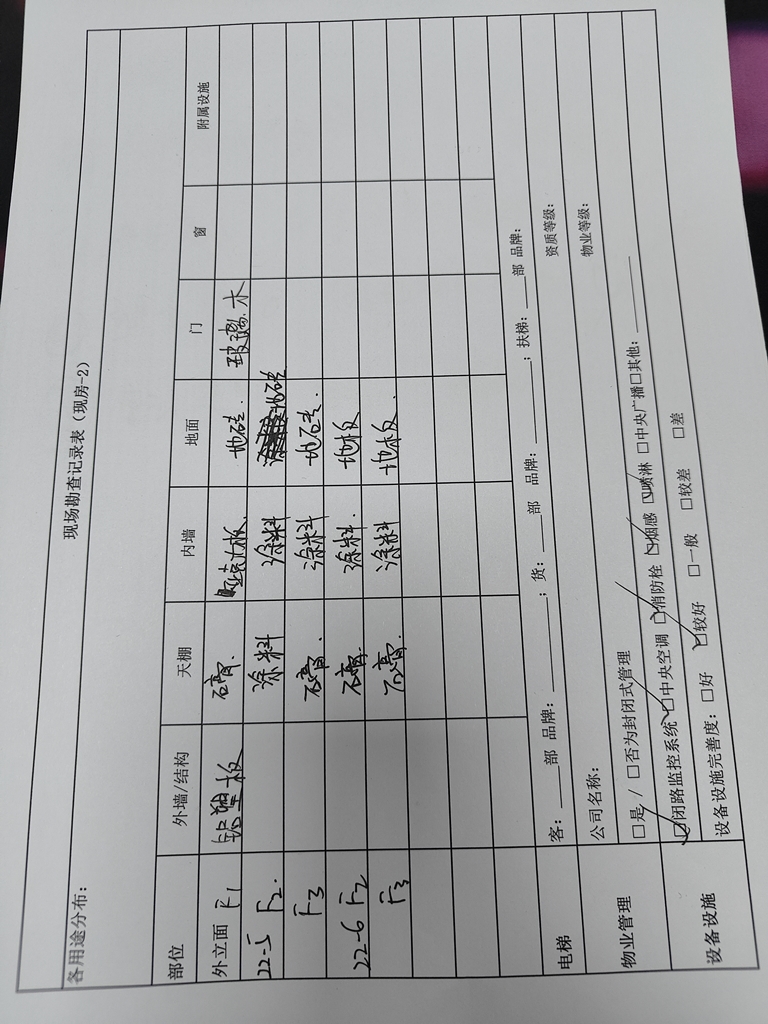 现场勘查记录表（现房-2）
各用途分布：
部位 外墙/结构 天棚 内墙 地面 门 窗 附属设施
外立面 F1 铝塑板 石膏. 地砖. 玻璃.木
22-5 F2. 涂料 涂料 地砖
F3 石膏. 涂料 地砖.
22-6 F2 石膏. 涂料. 地板
F3 石膏. 涂料 地板.
电梯 客：____部 品牌：________；货：____部 品牌：________；扶梯：____部 品牌：
物业管理 公司名称： 资质等级：
□是 / □否为封闭式管理 物业等级：
设备设施 ☑闭路监控系统 ☑中央空调 ☑消防栓 ☑烟感 ☑喷淋 □中央广播□其他：________
设备设施完善度：□好 ☑较好 □一般 □较差 □差